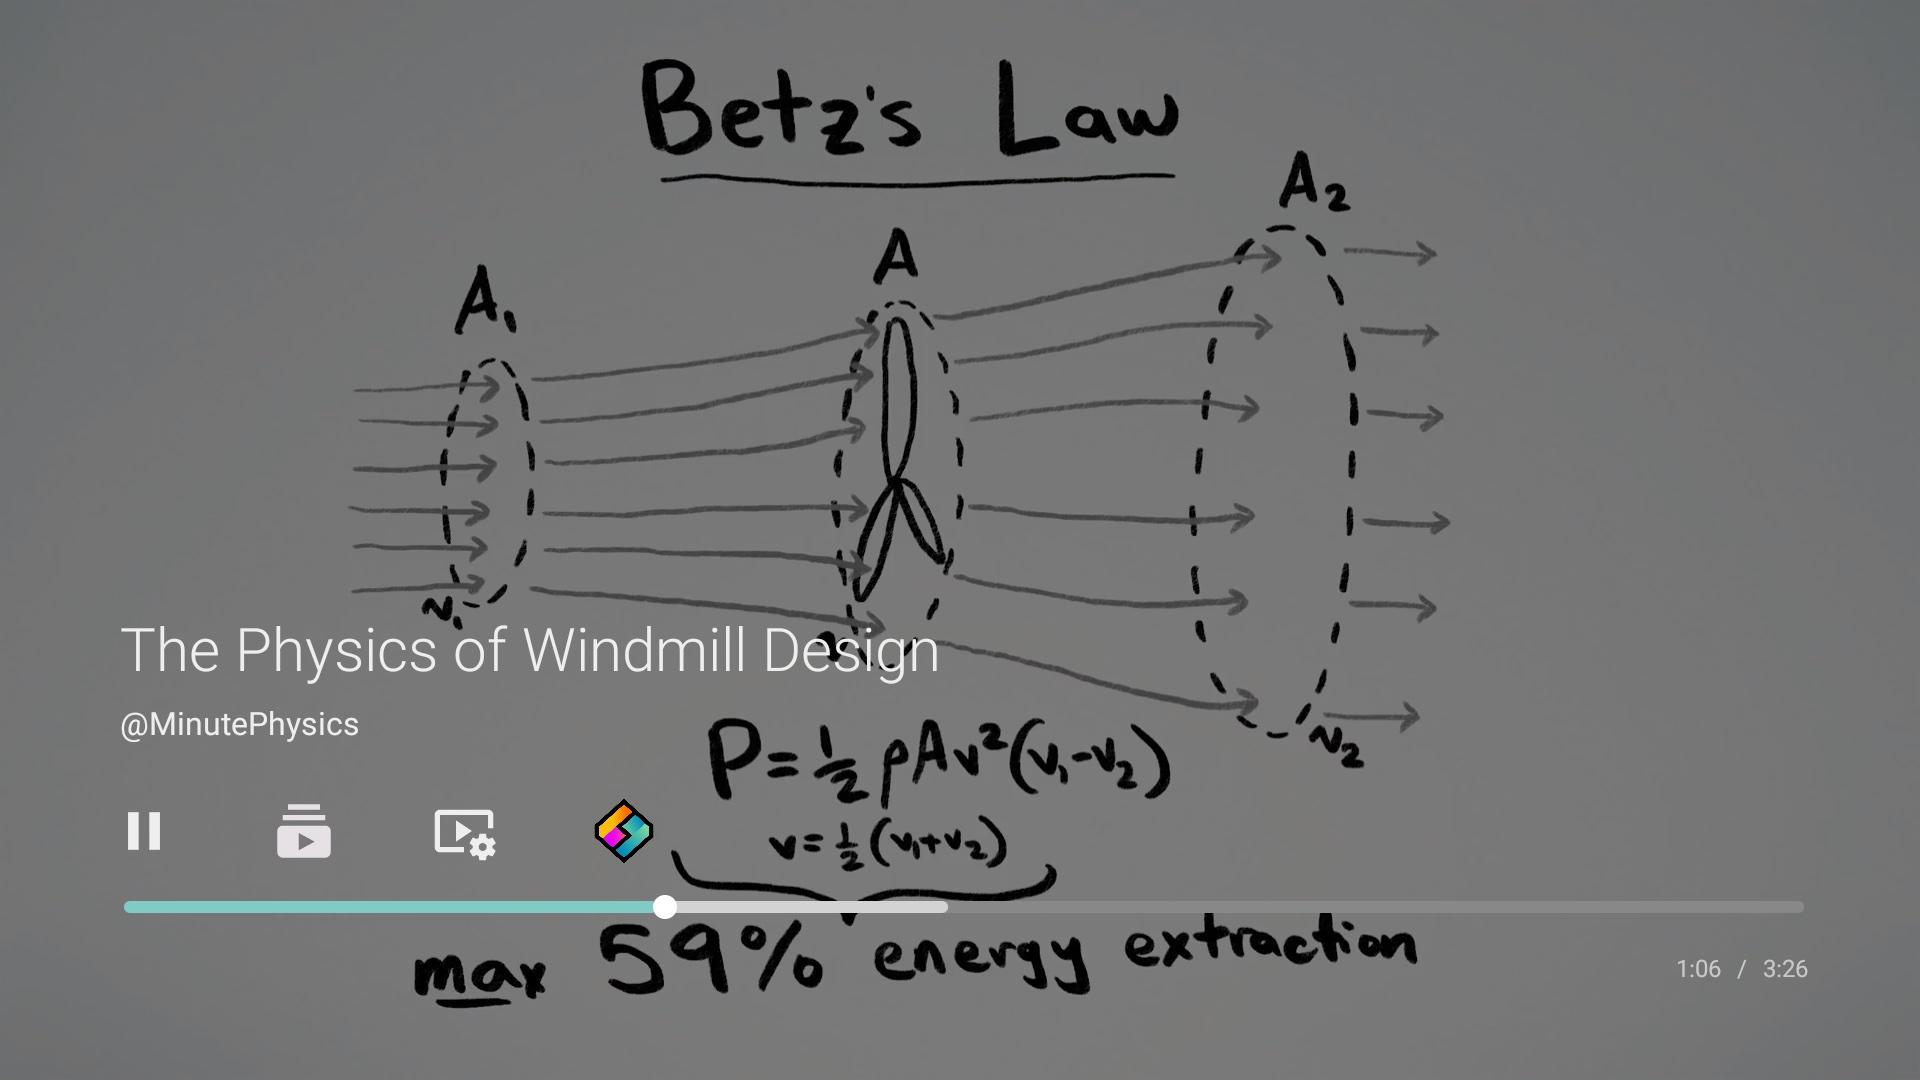 Betz's Law
A₂
A
A₁
v₁
The Physics of Windmill Design
@MinutePhysics
v₂
P=½ρAv²(v₁-v₂)
v=½(v₁+v₂)
max 59% energy extraction
1:06 / 3:26